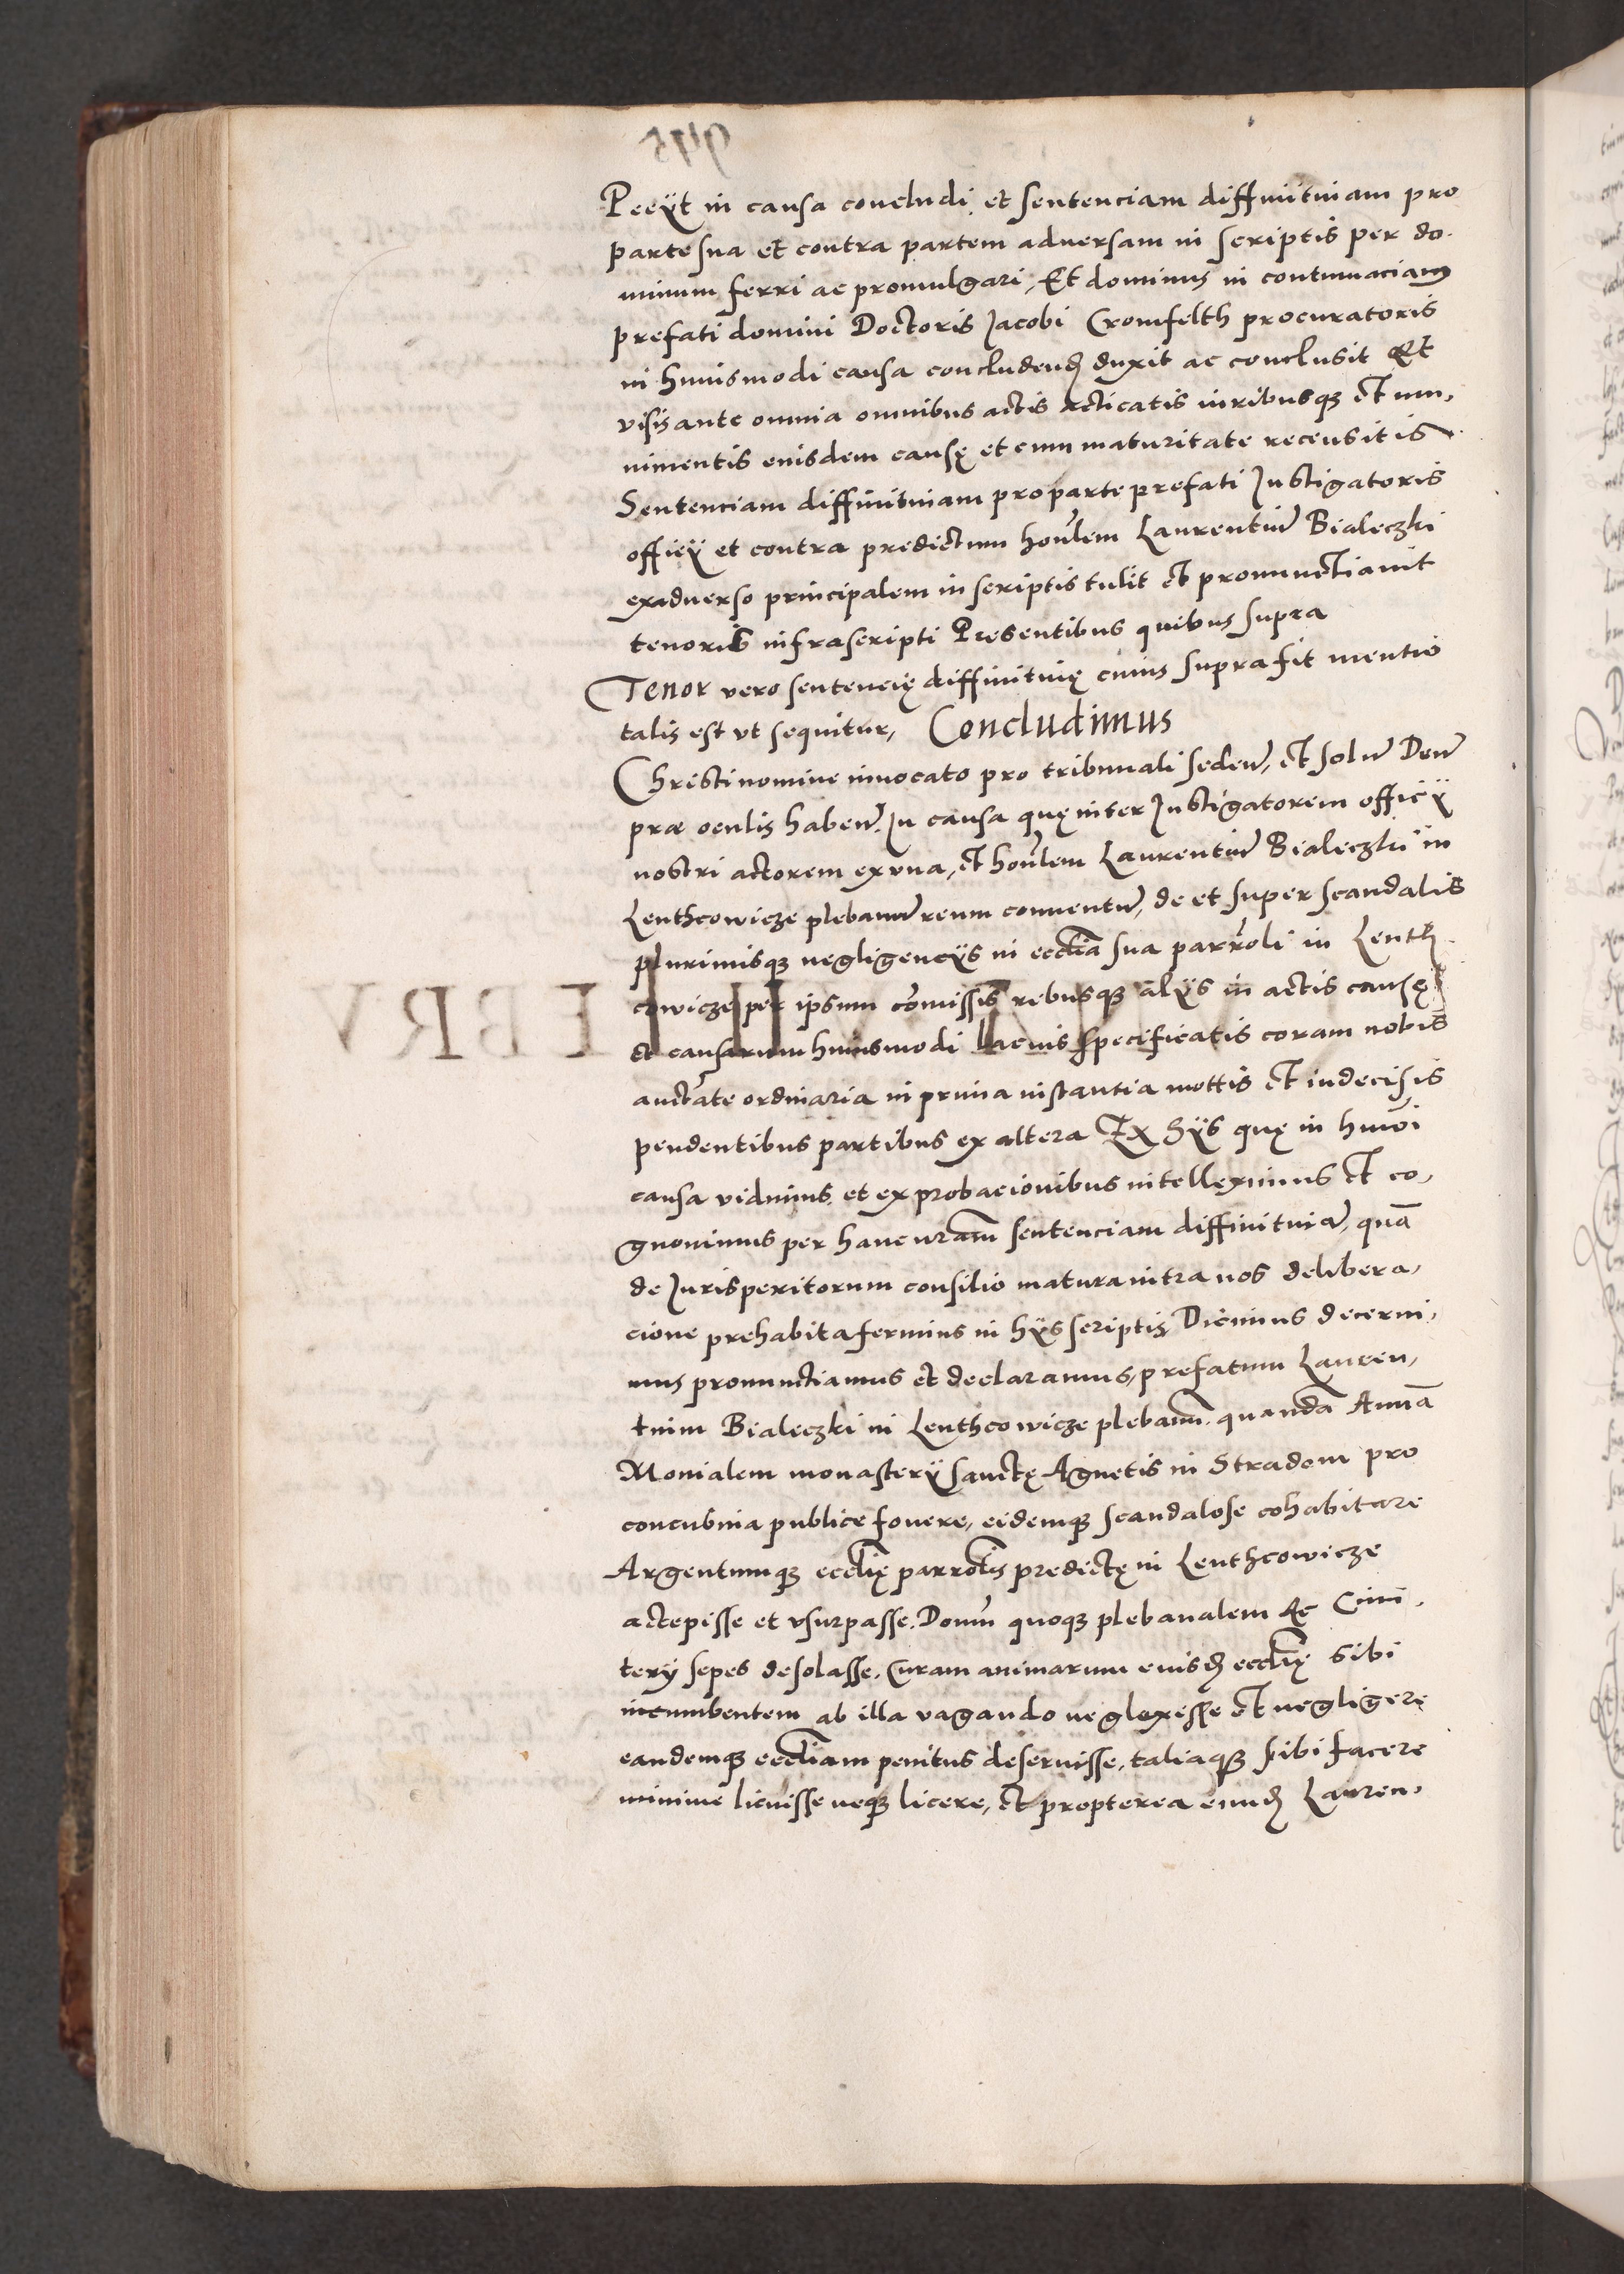 Peeÿt in causa concludi et sentenciam diffinitiuam pro
parte sua et contra partem aduersam in scriptis per do.
minum ferri ac promulgari, Et dominus in contumaciam
prefati domini Doctoris Jacobi Cromfelth procuratoris
in huiusmodi causa concludend duxit ac conclusit Et
visis ante omnia omnibus actis acticatis iuribusq et mu,
nimentis eiusdem causę et cum maturitate recensitis
Sentenciam diffinitiuam pro parte prefati Instigatoris
officÿ et contra predictum honlem Laurentiū Bialeczki
exaduerso principalem in scriptis tulit et pronunctiauit
tenoris infrascripti Presentibus quibus supra
Tenor vero sentencię diffinitiuę cuius supra fit mentio
talis est vt sequitur, Concludimus
Christi nomine inuocato pro tribunali seden, et solū Deū
præ oculis haben. In causa quę inter Instigatorem officÿ
nostri actorem ex vna, et honlem Laurentiū Bialeczki in
Lenthcowicze plebanū reum conuentū, de et super scandalis
plurimisq negligencÿs in ecclia sua parroli in Lenth
cowicze per ipsum cōmissis rebusq alÿs in actis causę
et causarum huiusmodi lacius specificatis coram nobis
auctate ordinaria in prima instantia mottis et indecisis
pendentibus partibus ex altera Ex Hÿs quę in humōi
causa vidimus et ex probacionibus intelleximus et co,
gnouimus per hanc nram sentenciam diffinitiuā, quā
de Jurisperitorum consilio matura intra nos delibera,
cione prehabita ferimus in hÿs scriptis Dicimus decerni,
mus pronunctiamus et declaramus, prefatum Lauren,
tium Bialeczki in Lenthcowicze plebanū quandā Annā
Monialem monasterÿ sanctę Agnetis in Stradom pro
concubina publice fouere, eidemq scandalose cohabitare
Argentumq ecclię parrolis predictę in Lenthcowicze
actepisse et vsurpasse. Domū quoq plebanalem Ac Cimi,
terÿ sepes desolasse, Curam animarum eiusd ecclię sibi
incumbentem ab illa vagando neglexisse et negligere
eandemq eccliam penitus deseruisse, taliaq sibi facere
minime licuisse neq licere, et propterea eund Lauren,